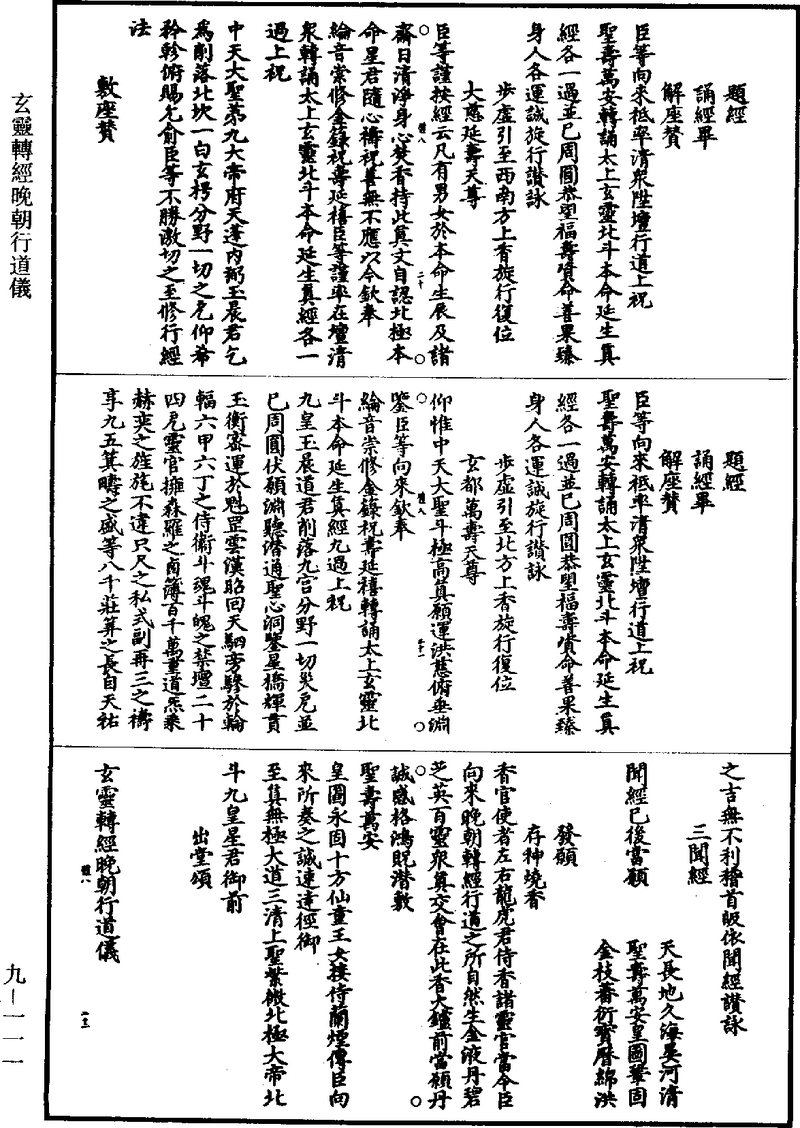 玄靈轉經晚朝行道儀
九—一一一
題經
誦經畢
解座贊
臣等向來祇率清衆陞壇行道上祝
聖壽萬安轉誦太上玄靈北斗本命延生真
經各一過並已周圓恭望福壽資命善果臻
身人各運誠旋行讚詠
步虛引至西南方上香旋行復位
大慈延壽天尊
臣等謹按經云凡有男女於本命生辰及諸
齋日清淨身心焚香持此真文自認北極本
命星君隨心禱祝善無不應以今欽奉
綸音崇修金籙祝壽延禧臣等謹率在壇清
衆轉誦太上玄靈北斗本命延生真經各一
過上祝
中天大聖第九大帝府天蓬內弼玉晨君乞
爲削落北坎一白玄枵分野一切之厄仰希
矜軫俯賜允俞臣等不勝激切之至修行經
法
敷座贊
題經
誦經畢
解座贊
臣等向來祇率清衆陞壇行道上祝
聖壽萬安轉誦太上玄靈北斗本命延生真
經各一過並已周圓恭望福壽資命善果臻
身人各運誠旋行讚詠
步虛引至北方上香旋行復位
玄都萬壽天尊
仰惟中天大聖斗極高真願運洪慈俯垂淵
鑒臣等向來欽奉
綸音崇修金籙祝壽延禧轉誦太上玄靈北
斗本命延生真經九過上祝
九皇玉晨道君削落九宮分野一切災厄並
已周圓伏願淵聽潛通聖心洞鑒星橋輝貫
玉衡密運於魁罡雲漢昭回天駟旁驂於輪
輻六甲六丁之侍衛斗魂斗魄之禁壇二十
四炁靈官擁森羅之鹵簿百千萬重道炁乘
赫奕之旌旄不違只尺之私式副再三之禱
享九五箕疇之盛等八千莊筭之長自天祐
之吉無不利稽首皈依聞經讚詠
三聞經
天長地久海晏河清
聞經已後當願　聖壽萬安皇圖鞏固
金枝蕃衍寶曆綿洪
發願
存神燒香
香官使者左右龍虎君侍香諸靈官當令臣
向來晚朝轉經行道之所自然生金液丹碧
芝英百靈衆真交會在此香火鑪前當願丹
誠感格鴻貺潛敷
聖壽萬安
皇圖永固十方仙童玉女接侍蘭煙傳臣向
來所奏之誠速達徑御
至真無極大道三清上聖紫微北極大帝北
斗九皇星君御前
出堂頌
玄靈轉經晚朝行道儀